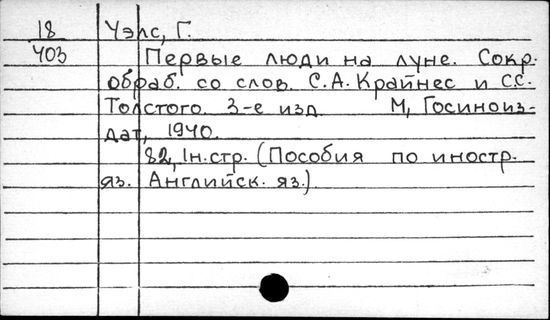 18 Уэлс, Г.
403 Первые люди на луне. Сокр.
обраб. со слов. С.А. Крайнес и С.С.
Толстого. 3-е изд. М, Госиноиз-
дат, 1940.
82, 1н.стр. (Пособия по иностр.
яз. Английск. яз.)